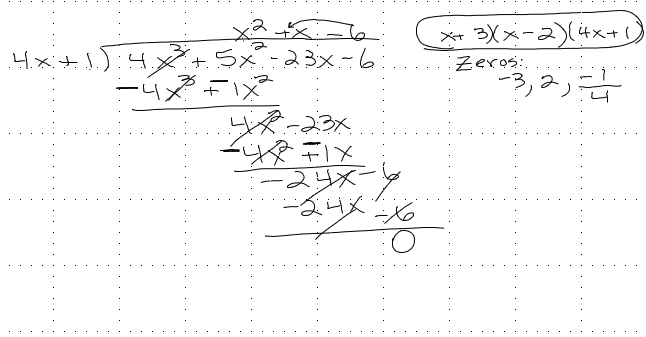 x² + x - 6
4x + 1) 4x³ + 5x² - 23x - 6
-4x³ + -1x²
4x² - 23x
-4x² + -1x
-24x - 6
-24x - 6
0
x + 3)(x - 2)(4x + 1)
Zeros:
-3, 2, -1/4